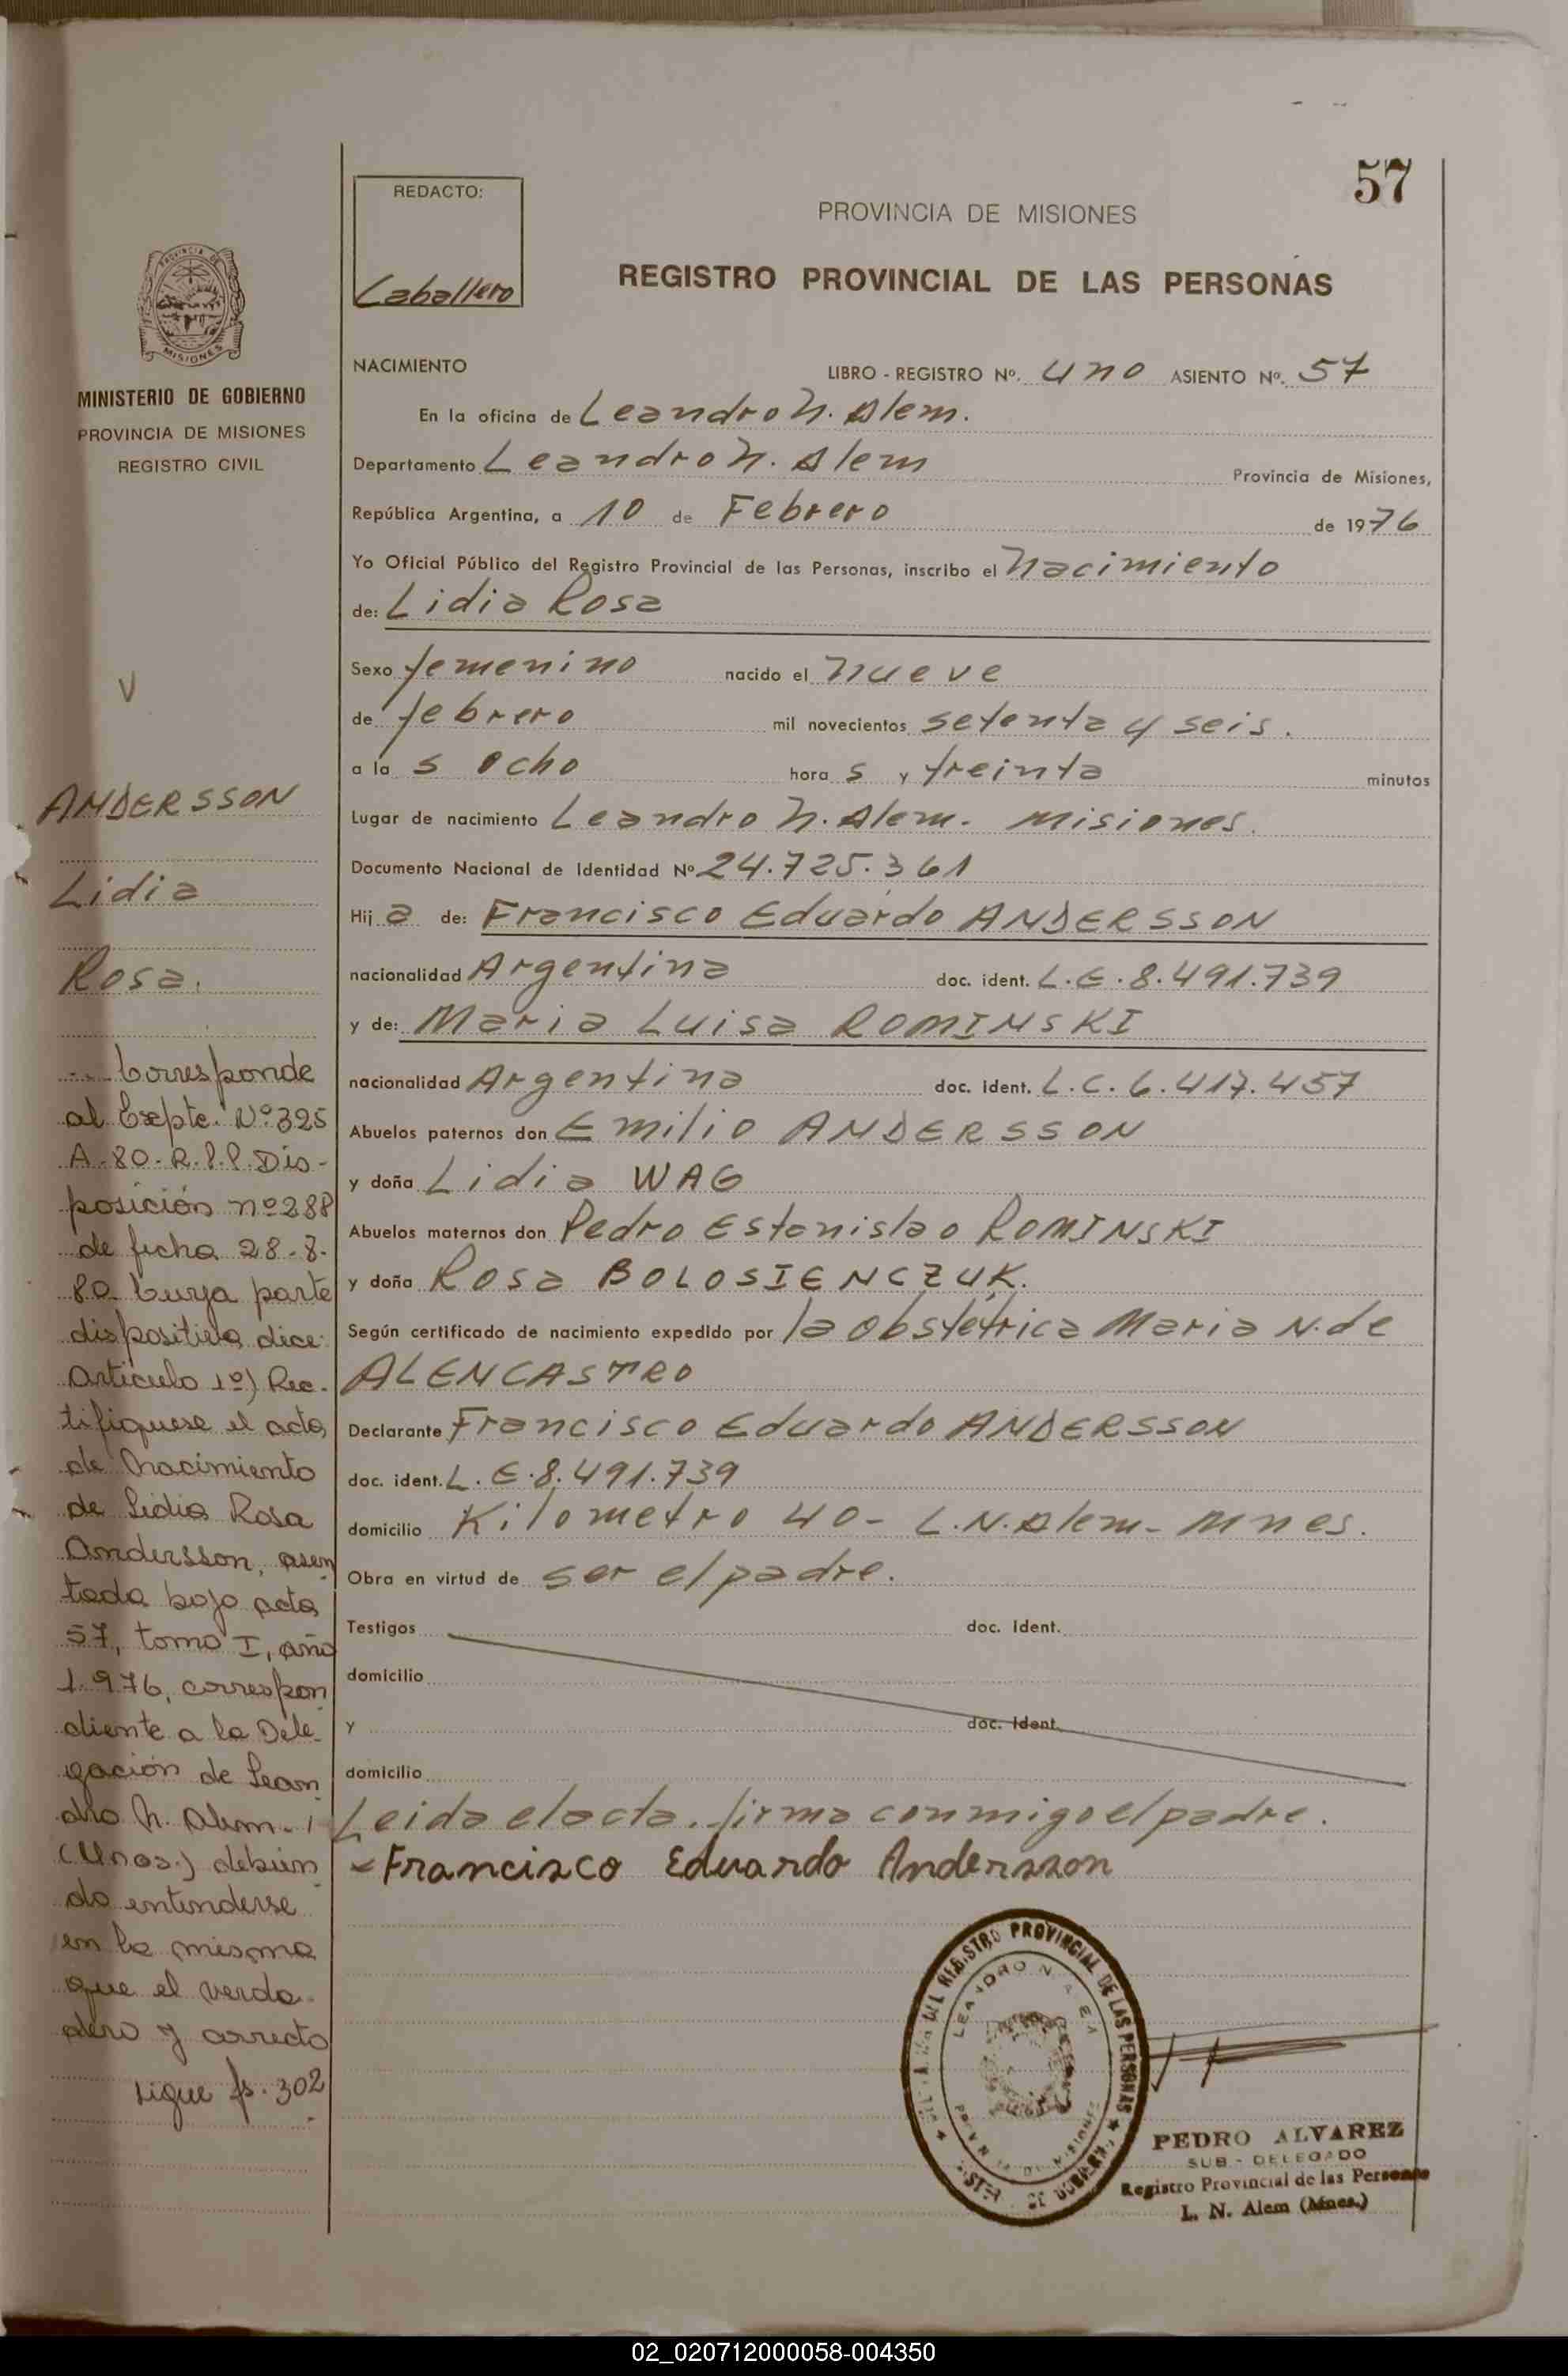 57
REDACTO:
Caballero
PROVINCIA DE MISIONES
REGISTRO PROVINCIAL DE LAS PERSONAS
PROVINCIA DE
MISIONES
MINISTERIO DE GOBIERNO
PROVINCIA DE MISIONES
REGISTRO CIVIL
V
ANDERSSON
Lidia
Rosa.
Corresponde
al Expte. Nº 325
A-80-R.P.P. Dis-
posición nº 288
de fecha 28-8-
80 Cuya parte
dispositiva dice:
Artículo 1º) Rec-
tifiquese el acta
de Nacimiento
de Lidia Rosa
Andersson, asen
tada bajo acta
57, tomo I, año
1.976, correspon
diente a la Dele-
gación de Lean
dro N. Alem -
(Mnes.) debien
do entenderse
en la misma
que el verda-
dero y correcto
sigue fs. 302
NACIMIENTO LIBRO - REGISTRO Nº. uno ASIENTO Nº. 57
En la oficina de Leandro N. Alem.
Departamento Leandro N. Alem Provincia de Misiones,
República Argentina, a 10 de Febrero de 1976
Yo Oficial Público del Registro Provincial de las Personas, inscribo el Nacimiento
de: Lidia Rosa
Sexo femenino nacido el nueve
de febrero mil novecientos setenta y seis.
a la s ocho hora s y treinta minutos
Lugar de nacimiento Leandro N. Alem. Misiones.
Documento Nacional de Identidad Nº 24.725.361
Hij a de: Francisco Eduardo ANDERSSON
nacionalidad Argentina doc. ident. L.E.8.491.739
y de: Maria Luisa ROMINSKI
nacionalidad Argentina doc. ident. L.C.6.417.457
Abuelos paternos don Emilio ANDERSSON
y doña Lidia WAG
Abuelos maternos don Pedro Estanislao ROMINSKI
y doña Rosa BOLOSIENCZUK.
Según certificado de nacimiento expedido por la obstétrica Maria N. de
ALENCASTRO
Declarante Francisco Eduardo ANDERSSON
doc. ident. L.E.8.491.739
domicilio Kilometro 40- L.N.Alem- Mnes.
Obra en virtud de ser el padre.
Testigos doc. Ident.
domicilio
y doc. Ident.
domicilio
Leida el acta, firma conmigo el padre.
Francisco Eduardo Andersson
REGISTRO PROVINCIAL DE LAS PERSONAS
LEANDRO N. ALEM
PEDRO ALVAREZ
SUB - DELEGADO
Registro Provincial de las Personas
L. N. Alem (Mnes.)
02_020712000058-004350